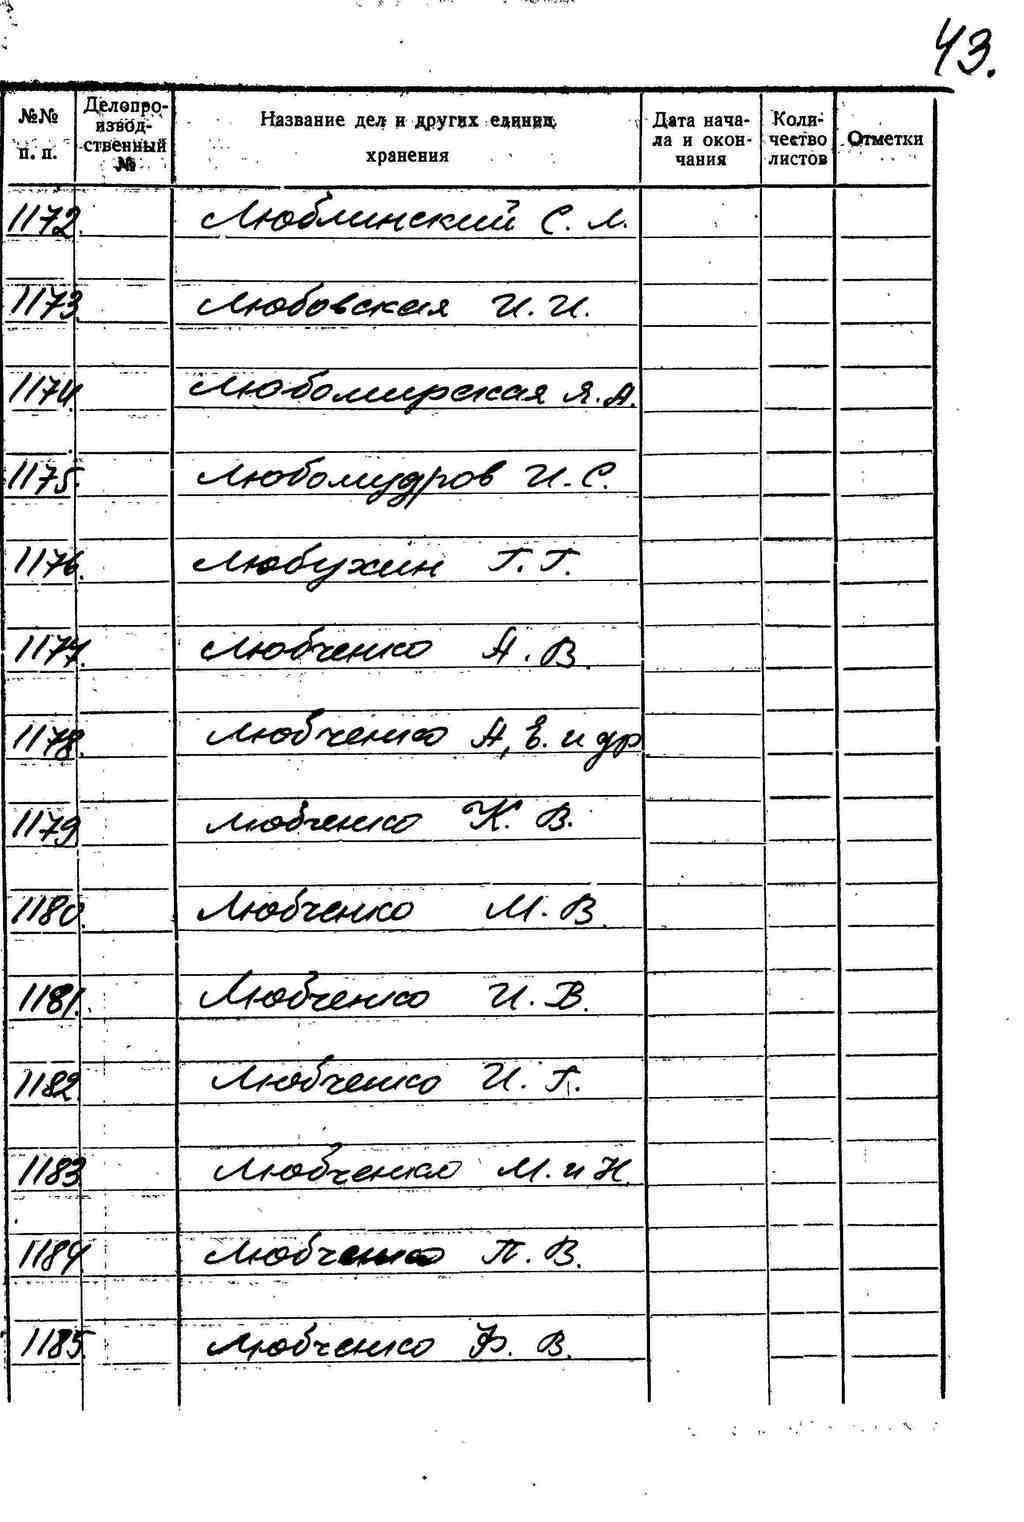 43.
№№ п. п. Делопроизводственный № Название дел и других единиц хранения Дата начала и окончания Количество листов Отметки
1172. Люблинский С. Л.
1173 Любовская И. И.
1174. Любомирская Я. А.
1175. Любомудров И. С.
1176. Любухин Г. Г.
1177. Любченко А. В.
1178. Любченко А, Е. и др
1179 Любченко К. В.
1180. Любченко М. В.
1181. Любченко И. В.
1182. Любченко И. Г.
1183 Любченко М. и Н.
1184 Любченко П. В.
1185. Любченко Ф. В.